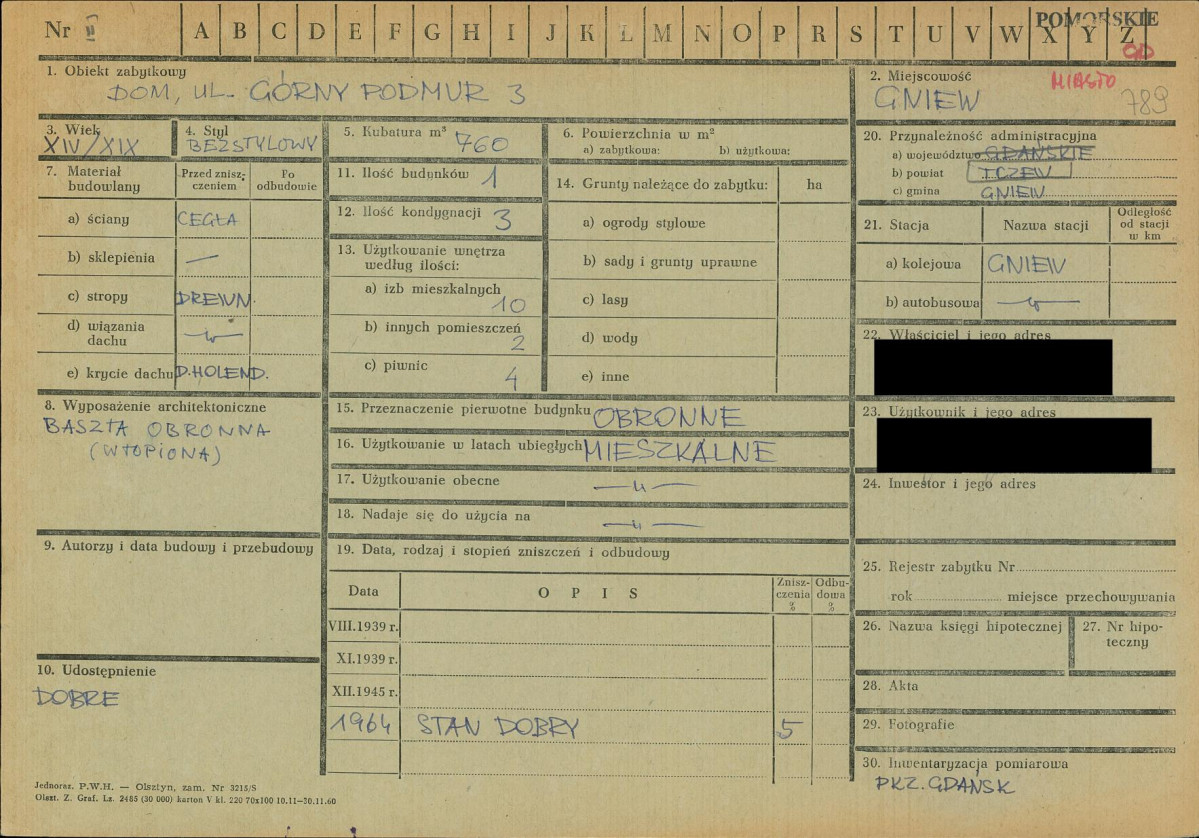 Nr II A B C D E F G H I J K L M N O P R S T U V W X Y Z
POMORSKIE
MIASTO
789
1. Obiekt zabytkowy
DOM, UL. GÓRNY PODMUR 3
2. Miejscowość
GNIEW
3. Wiek
XIV/XIX
4. Styl
BEZSTYLOWY
5. Kubatura m³ 760
6. Powierzchnia w m²
a) zabytkowa: b) użytkowa:
7. Materiał budowlany
Przed znisz-
czeniem
Po
odbudowie
a) ściany CEGŁA
b) sklepienia —
c) stropy DREWN.
d) wiązania
dachu —"—
e) krycie dachu D.HOLEND.
8. Wyposażenie architektoniczne
BASZTA OBRONNA
(WTOPIONA)
9. Autorzy i data budowy i przebudowy
10. Udostępnienie
DOBRE
11. Ilość budynków 1
12. Ilość kondygnacji 3
13. Użytkowanie wnętrza
według ilości:
a) izb mieszkalnych
10
b) innych pomieszczeń
2
c) piwnic
4
14. Grunty należące do zabytku: ha
a) ogrody stylowe
b) sady i grunty uprawne
c) lasy
d) wody
e) inne
15. Przeznaczenie pierwotne budynku OBRONNE
16. Użytkowanie w latach ubiegłych MIESZKALNE
17. Użytkowanie obecne —"—
18. Nadaje się do użycia na —"—
19. Data, rodzaj i stopień zniszczeń i odbudowy
Data OPIS
Znisz-
czenia
%
Odbu-
dowa
%
VIII.1939 r.
XI.1939 r.
XII.1945 r.
1964 STAN DOBRY 5
20. Przynależność administracyjna
a) województwo GDAŃSKIE
b) powiat TCZEW
c) gmina GNIEW
21. Stacja Nazwa stacji
Odległość
od stacji
w km
a) kolejowa GNIEW
b) autobusowa —"—
22. Właściciel i jego adres
23. Użytkownik i jego adres
24. Inwestor i jego adres
25. Rejestr zabytku Nr
rok miejsce przechowywania
26. Nazwa księgi hipotecznej
27. Nr hipo-
teczny
28. Akta
29. Fotografie
30. Inwentaryzacja pomiarowa
PKZ. GDAŃSK
Jednoraz. P.W.H. — Olsztyn, zam. Nr 3215/S
Olszt. Z. Graf. Lz. 2485 (30 000) karton V kl. 220 70x100 10.11—30.11.60